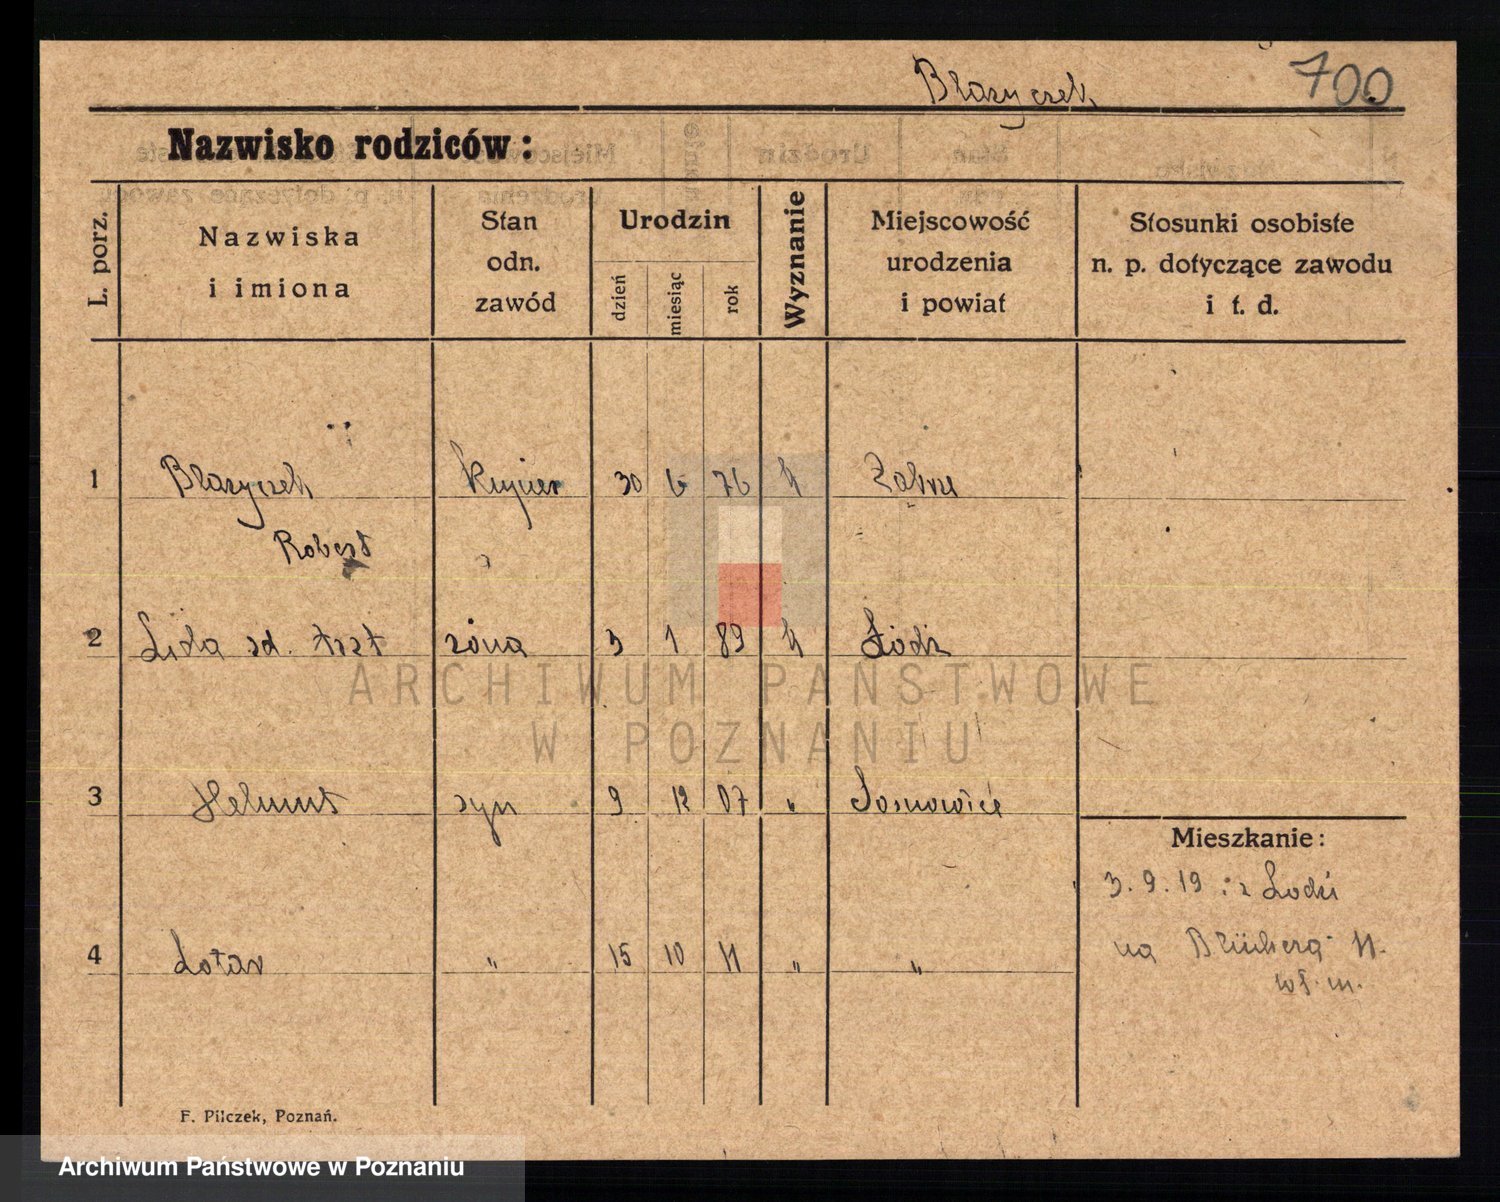 Blazyczek 700
Nazwisko rodziców:
L. porz.
Nazwiska
i imiona
Stan
odn.
zawód
Urodzin
dzień
miesiąc
rok
Wyznanie
Miejscowość
urodzenia
i powiat
Stosunki osobiste
n. p. dotyczące zawodu
i t. d.
1 Blazyczek 30 6 76 Zabrze
Robert
2 Lida żona 3 1 89 Łódź
3 Helmut syn 9 12 07 " Sosnowice
Mieszkanie:
3. 9. 19 : z Lodzi
4 Lotar " 15 10 11 " "
na 11.
F. Pilczek, Poznań.
ARCHIWUM PAŃSTWOWE
W POZNANIU
Archiwum Państwowe w Poznaniu